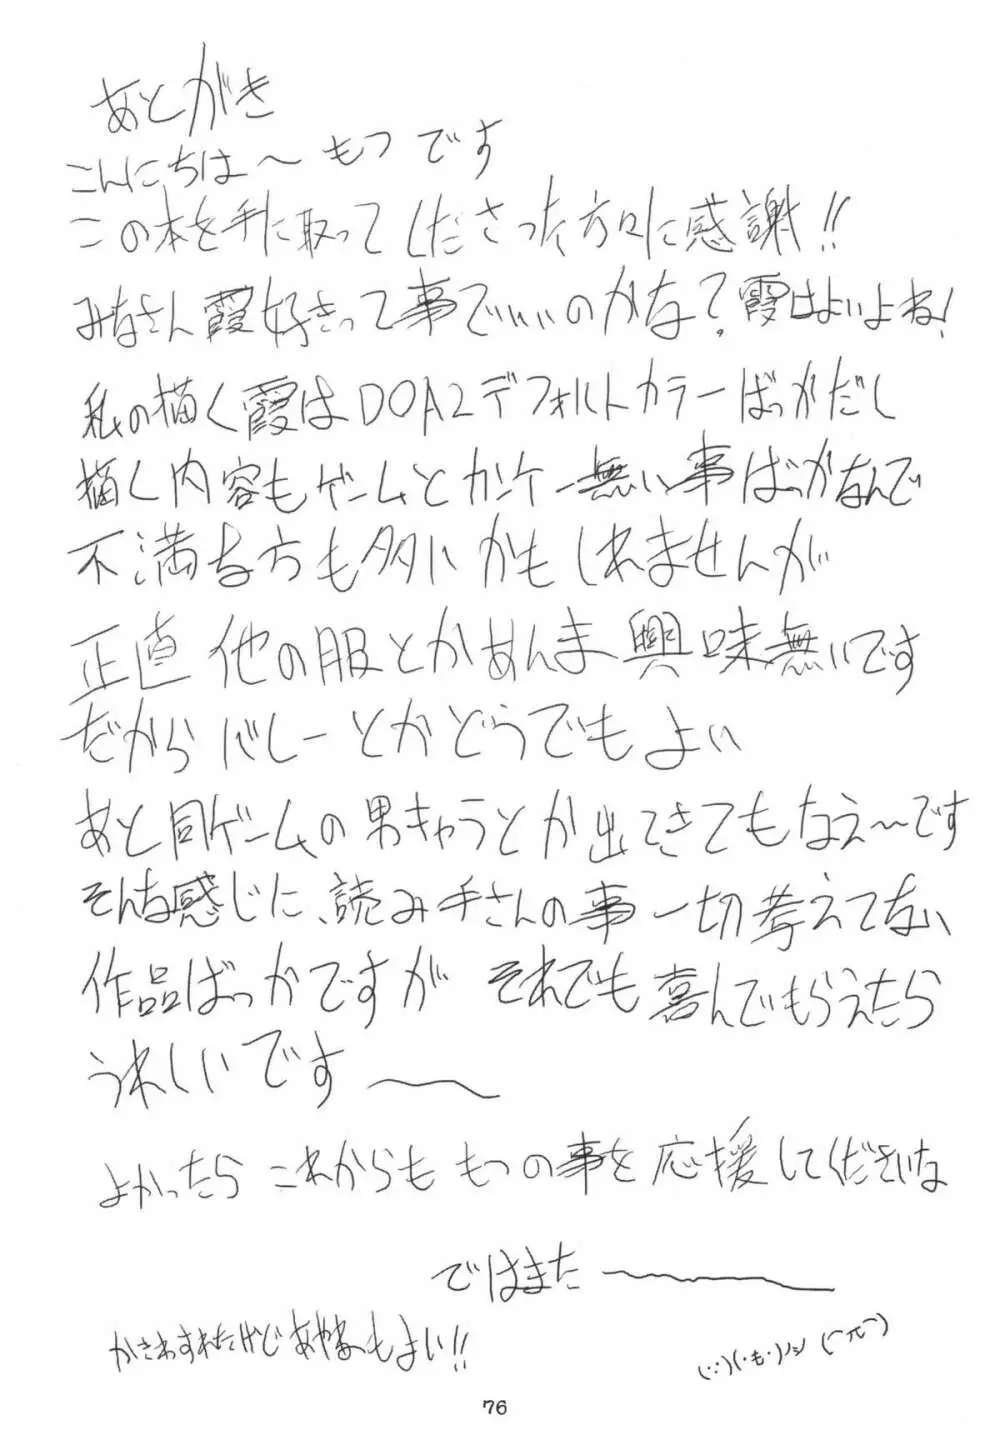 あとがき
こんにちは〜 もつ です
この本を手に取ってくださった方々に感謝!!
みなさん霞好きって事でいいのかな?霞はよいよね!
私の描く霞はDOA2デフォルトカラーばっかだし
描く内容もゲームとカンケー無い事ばっかなんで
不満な方も多いかもしれませんが
正直 他の服とかあんま興味無いです
だからバレーとかどうでもよい
あと同ゲームの男キャラとか出てきてもなえ〜です
そんな感じに、読み手さんの事一切考えてない
作品ばっかですが それでも喜んでもらえたら
うれしいです〜
よかったら これからも もつの事を応援してくださいな
ではまた〜
かきわすれたけど あやねもよい!!
76